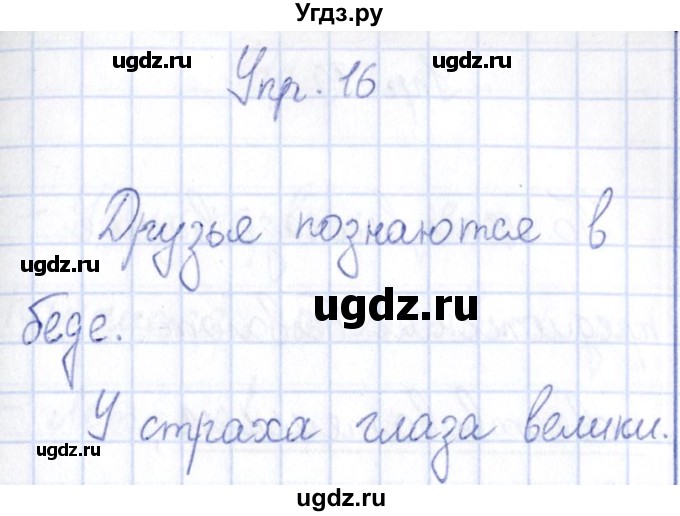 Угдз.ру
ugdz.ru ugdz.ru
Упр. 16
Друзья познаются в
ugdz.ru
ugdz.ru
беде.
У страха глаза велики.
ugdz.ru ugdz.ru
ugdz.ru